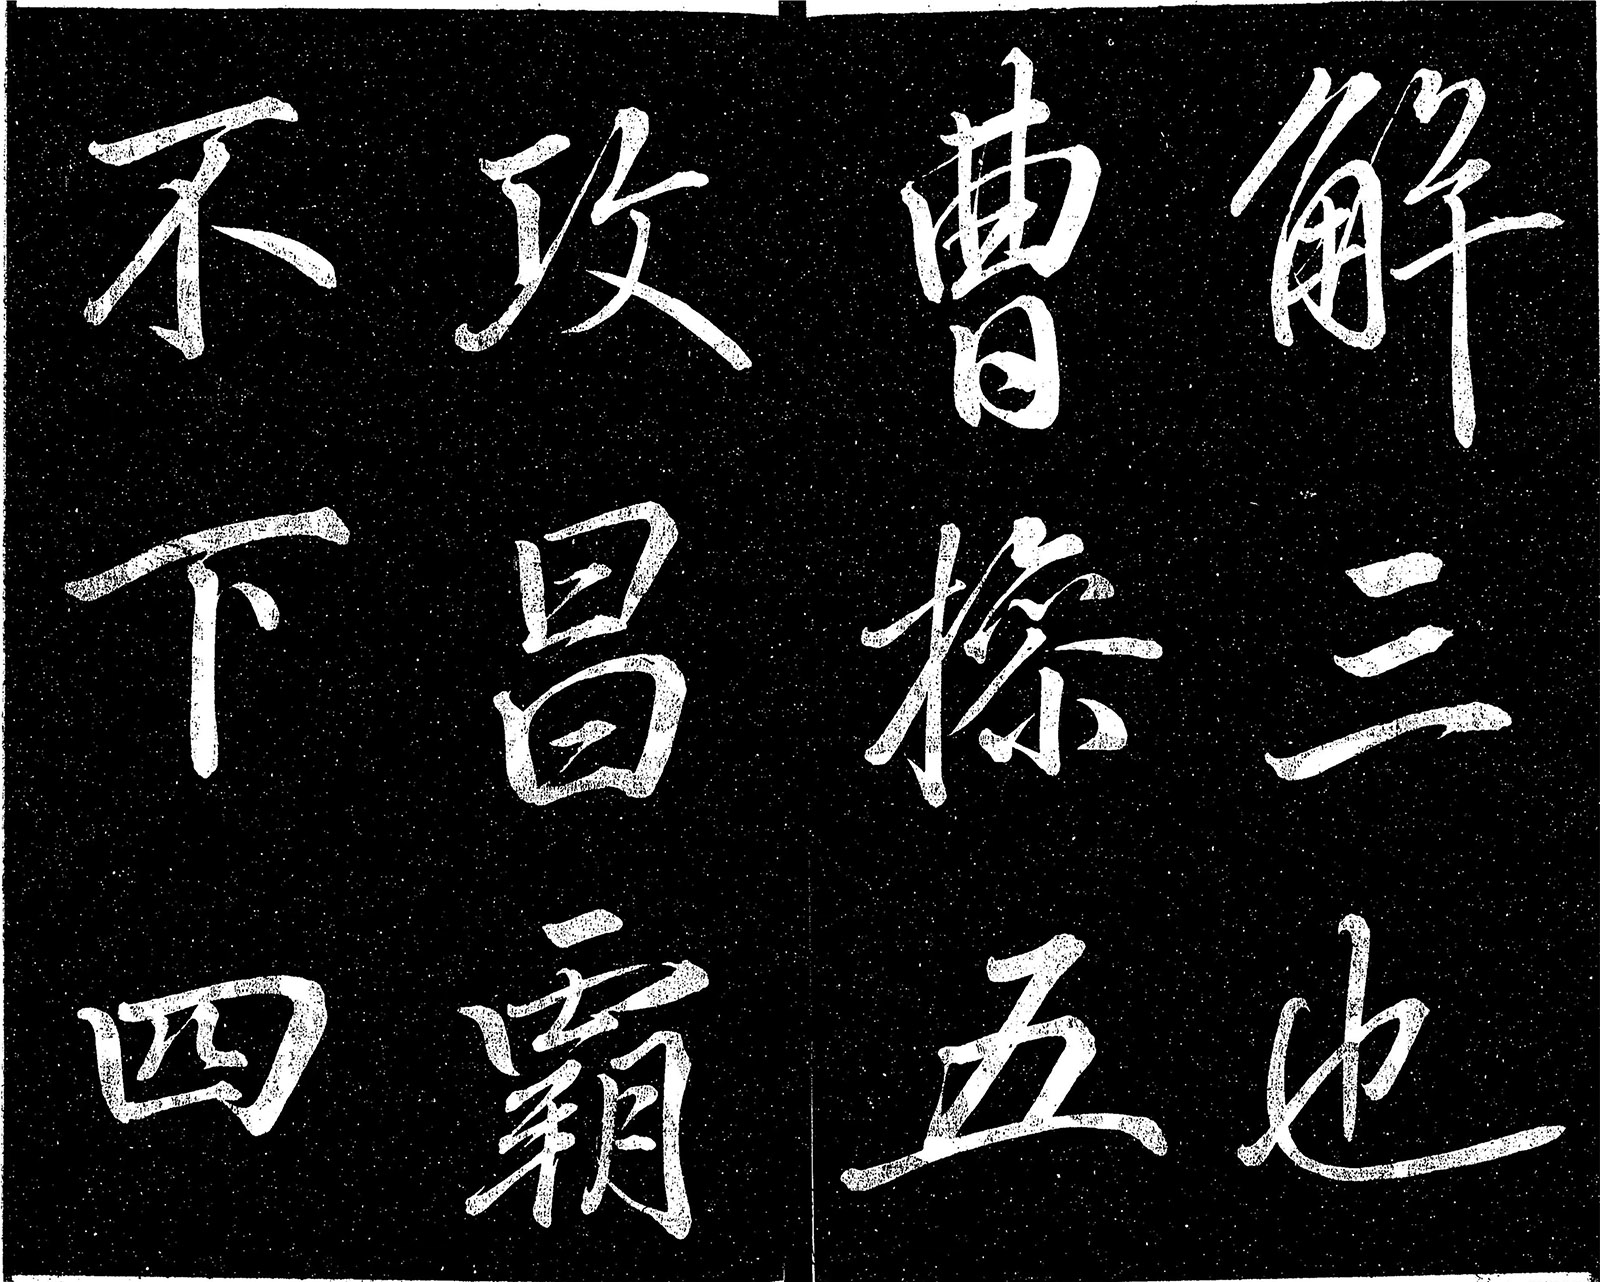 解三也
曹操五
攻昌霸
不下四